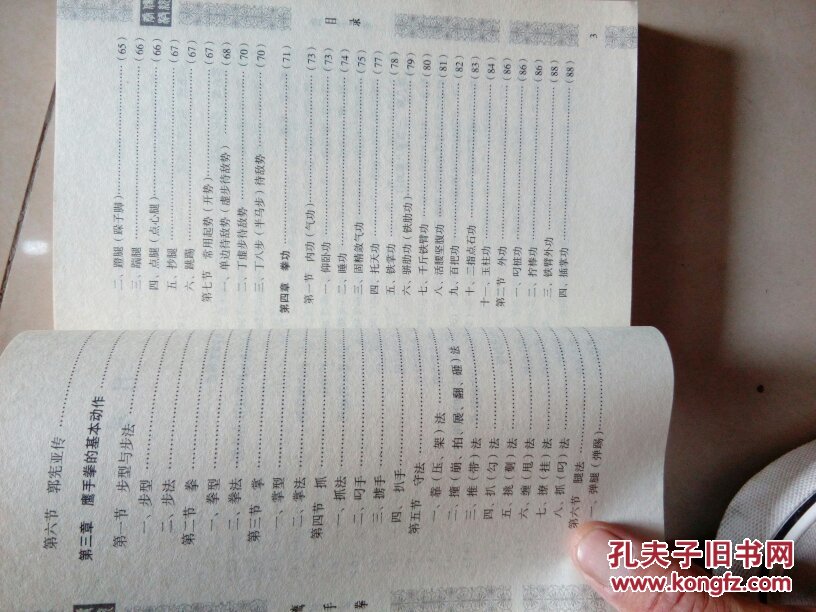 第六节 郭宪亚传
第三章 鹰手拳的基本动作
第一节 步型与步法
一、步型
二、步法
第二节 拳
一、拳型
二、拳法
第三节 掌
一、掌型
二、掌法
第四节 抓
一、抓法
二、叼手
三、掳手
四、扒手
第五节 守法
一、靠（压、架）法
二、撞（崩、拍、展、翻、砸）法
三、推（带）法
四、扒（勾）法
五、挑（剩）法
六、缠（甩）法
七、撩（挂）法
八、抓（叼）法
第六节 腿法
一、弹腿（弹踢）
鹰
手
拳
目 录
二、蹬腿（跺子脚）（65）
三、踹腿（66）
四、点腿（点心腿）（66）
五、抄腿（67）
六、跳踢（67）
第七节 常用起势（开势）（67）
一、单边待敌势（虚步待敌势）（68）
二、丁虚步待敌势（70）
三、丁八步（半马步）待敌势（70）
第四章 拳功（71）
第一节 内功（气功）（73）
一、仰卧功（73）
二、睡功（74）
三、固精敛气功（75）
四、托天功（77）
五、铁掌功（78）
六、骈肋功（铁肋功）（79）
七、千斤铁臂功（80）
八、活腰坚腹功（81）
九、百把功（82）
十、二指点石功（83）
十一、玉柱功（84）
第二节 外功（86）
一、叼桩功（86）
二、拧棒功（86）
三、铁臂外功（88）
四、插掌功（88）
3
孔夫子旧书网
www.kongfz.com